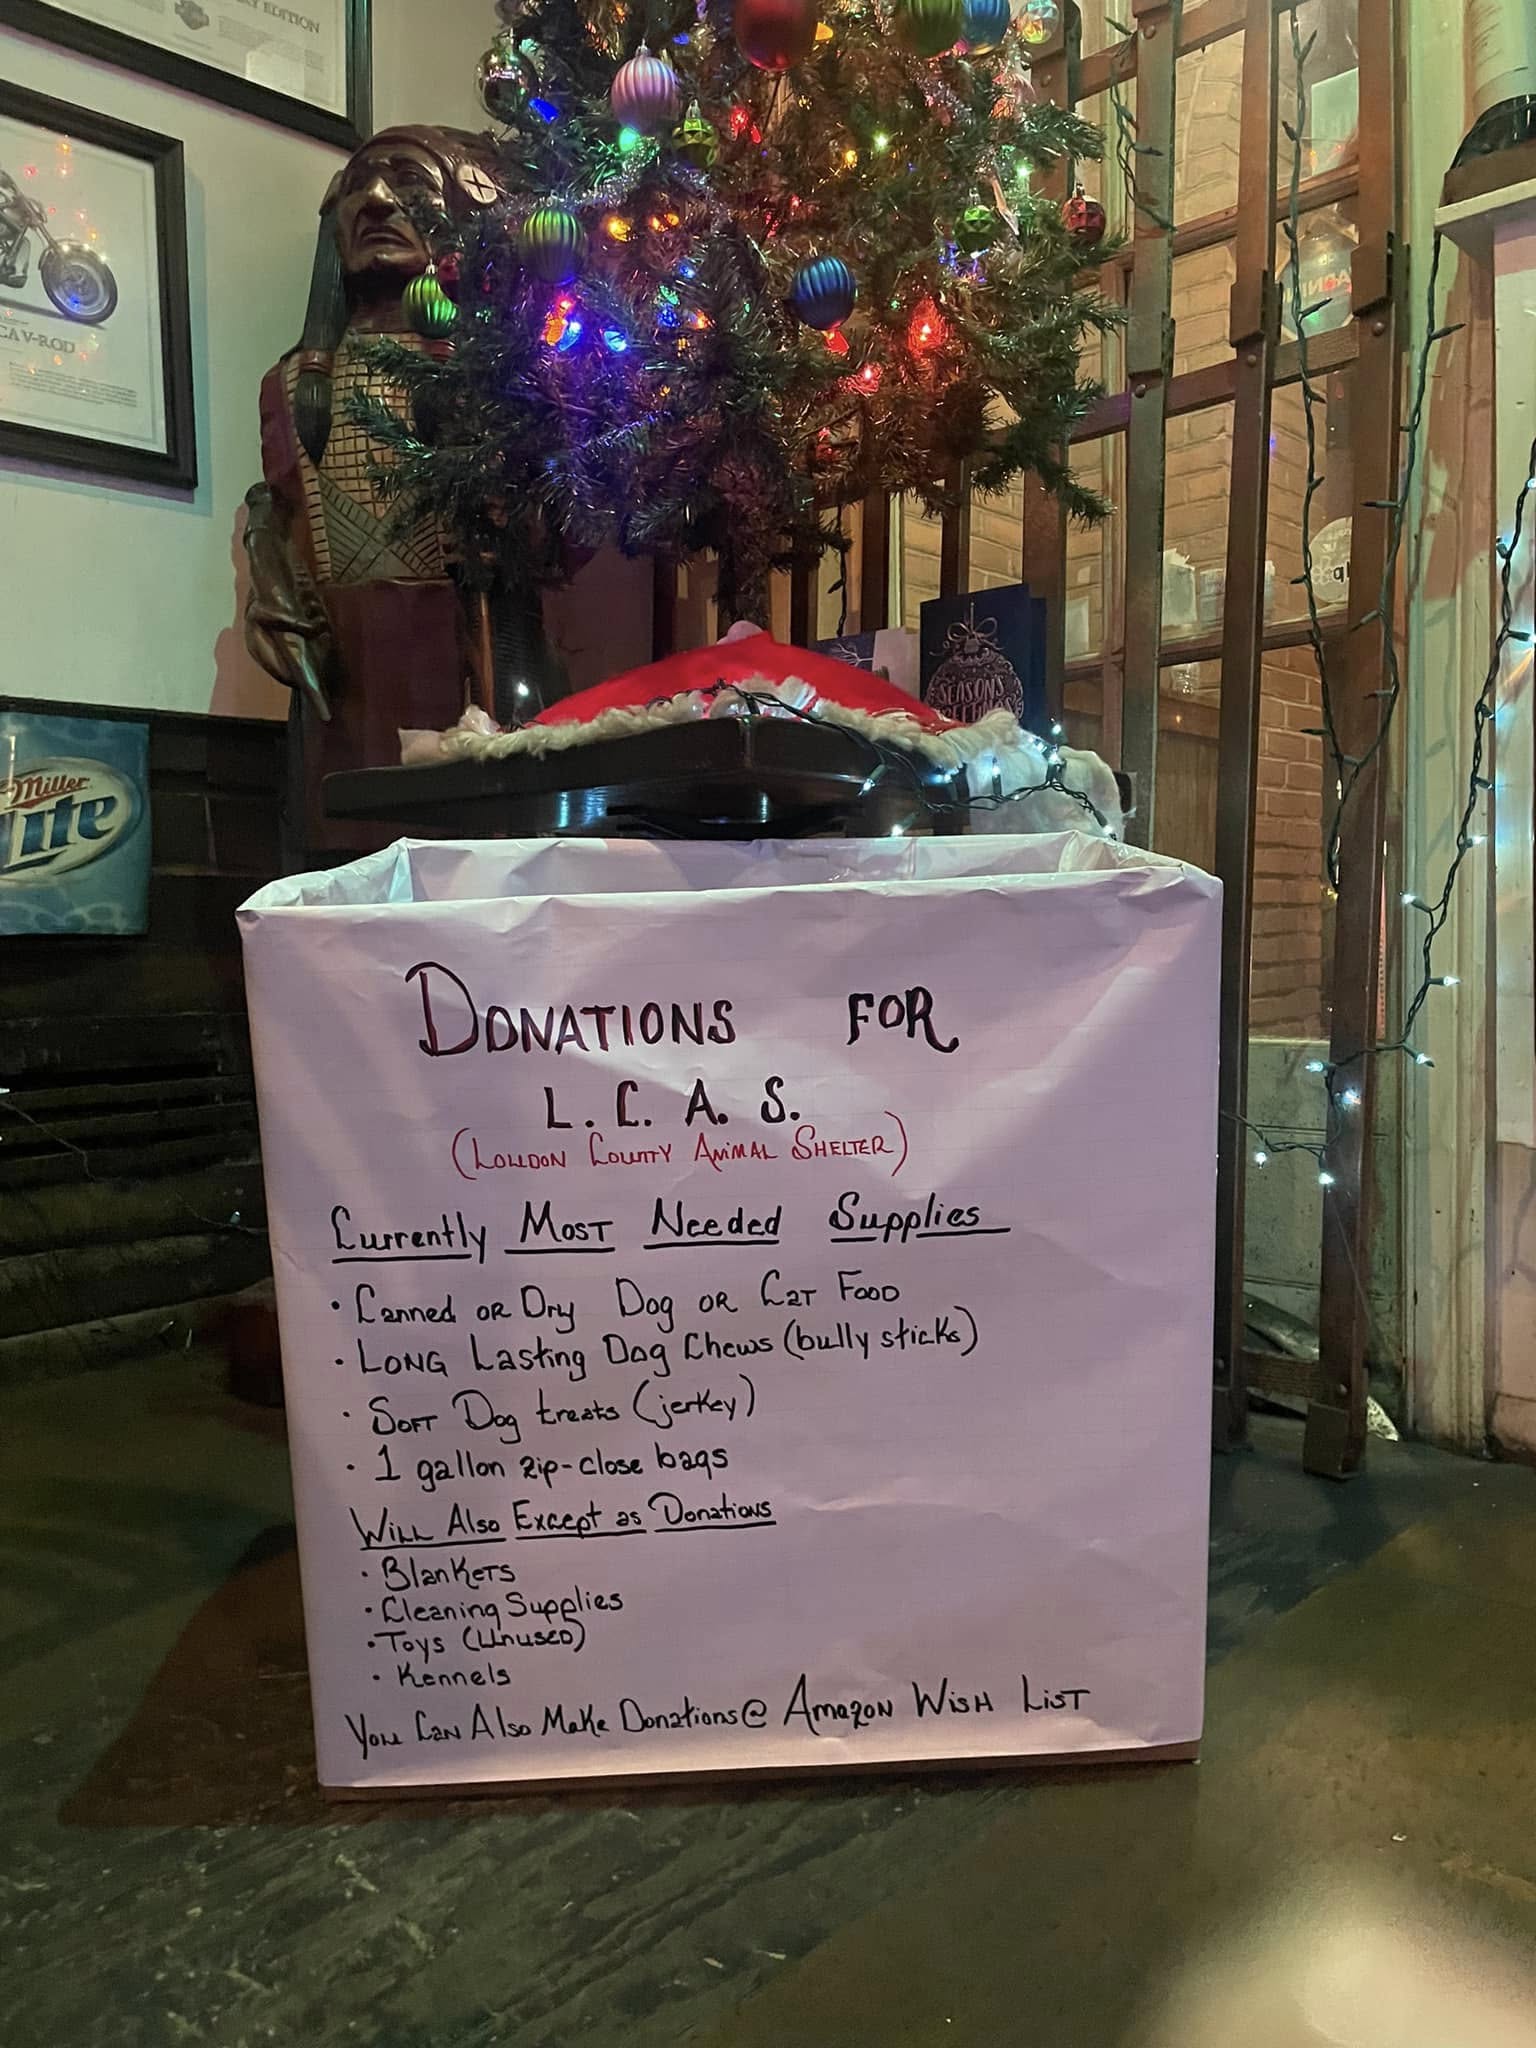 RY EDITION
CA V-ROD
Miller
Lite
SEASONS
DONATIONS FOR
L. C. A. S.
(LOUDON COUNTY ANIMAL SHELTER)
Currently MOST Needed Supplies
• Canned OR Dry Dog OR CAT FOOD
• LONG Lasting Dog Chews (bully sticks)
• SOFT Dog treats (jerkey)
• 1 gallon zip-close bags
WILL Also Except as Donations
• BlanKETS
• Cleaning Supplies
• Toys (UNUSED)
• Kennels
You CAN Also Make Donations@ AMAZON WISH LIST